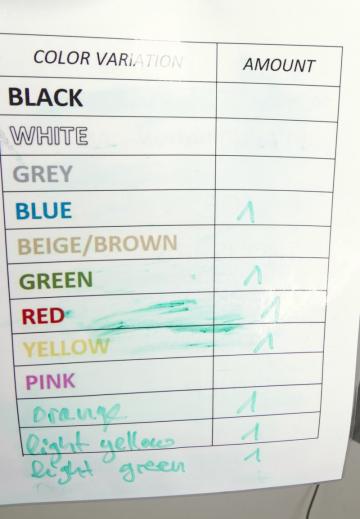 COLOR VARIATION AMOUNT
BLACK
WHITE
GREY
BLUE 1
BEIGE/BROWN
GREEN 1
RED 1
YELLOW 1
PINK
orange 1
light yellow 1
light green 1